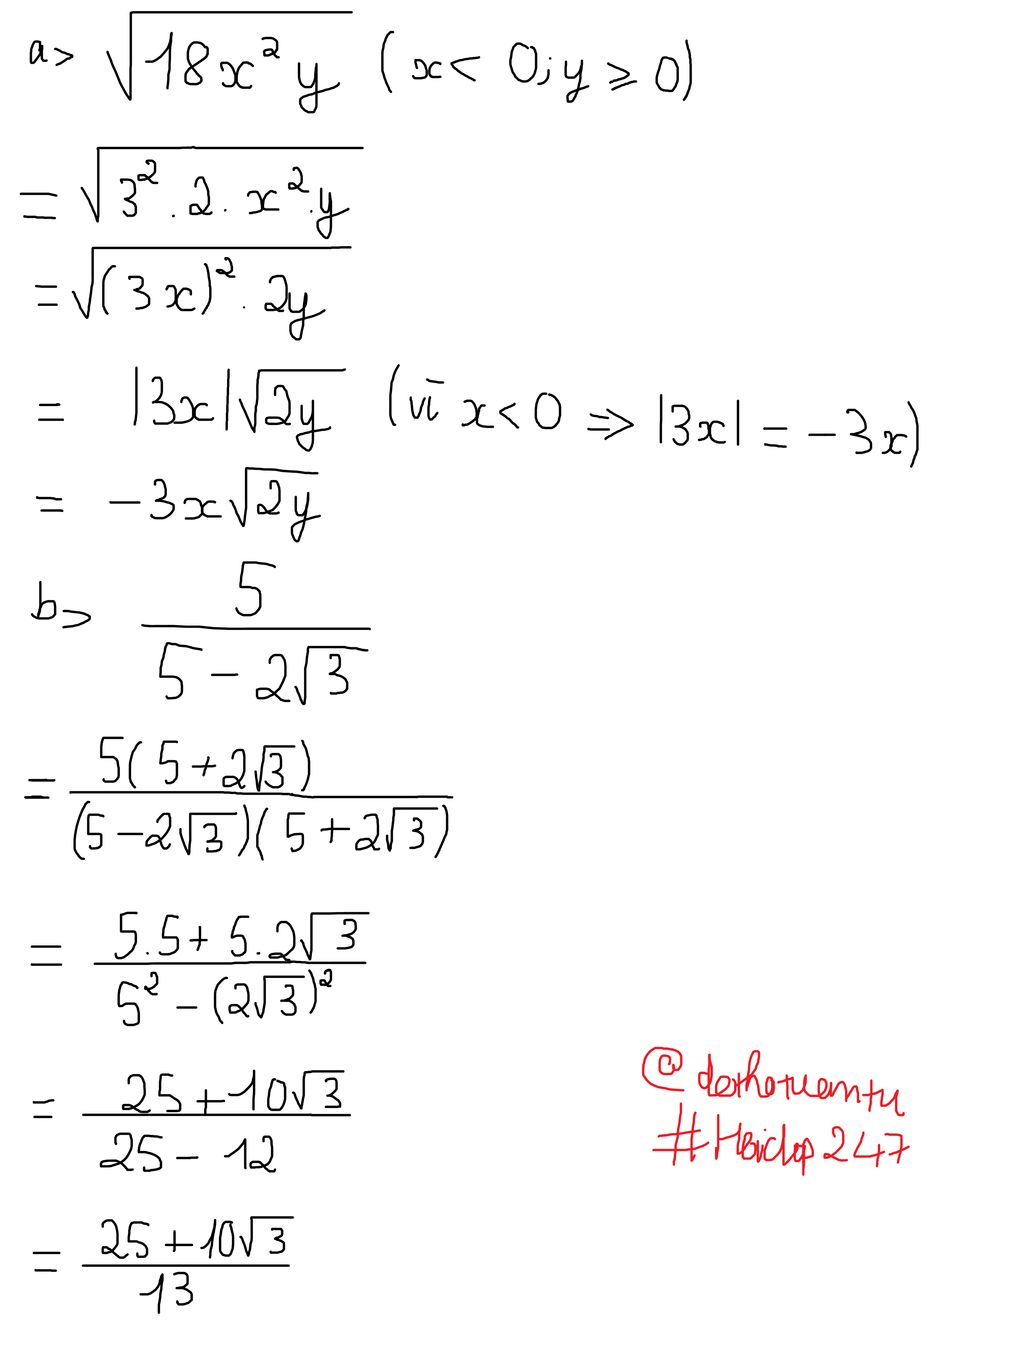 a> √(18x²y) (x < 0; y ≥ 0)
= √(3².2.x².y)
= √((3x)².2y)
= |3x|√(2y) (vì x < 0 => |3x| = -3x)
= -3x√(2y)
b> 5/(5 - 2√3)
= 5(5 + 2√3)/((5 - 2√3)(5 + 2√3))
= (5.5 + 5.2√3)/(5² - (2√3)²)
= (25 + 10√3)/(25 - 12)
= (25 + 10√3)/13
#Hoidap247